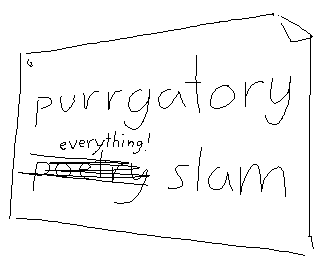 purrgatory
everything!
poetry slam